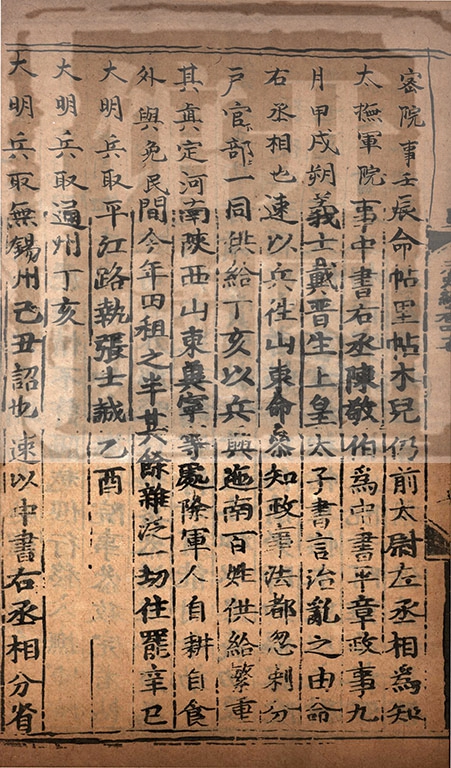 密院事壬辰命帖里帖木兒仍前太尉左丞相爲知
太撫軍院事中書右丞陳敬伯爲中書平章政事九
月甲戌朔義士戴晋生上皇太子書言治亂之由命
右丞相也速以兵徃山東命叅知政事法都忽剌分
戸官部一同供給丁亥以兵興迤南百姓供給繁重
其真定河南陜西山東冀寧等處除軍人自耕自食
外與免民間今年田租之半其餘雜泛一切住罷辛巳
大明兵取平江路執張士誠乙酉
大明兵取通州丁亥
大明兵取無錫州己丑詔也速以中書右丞相分省